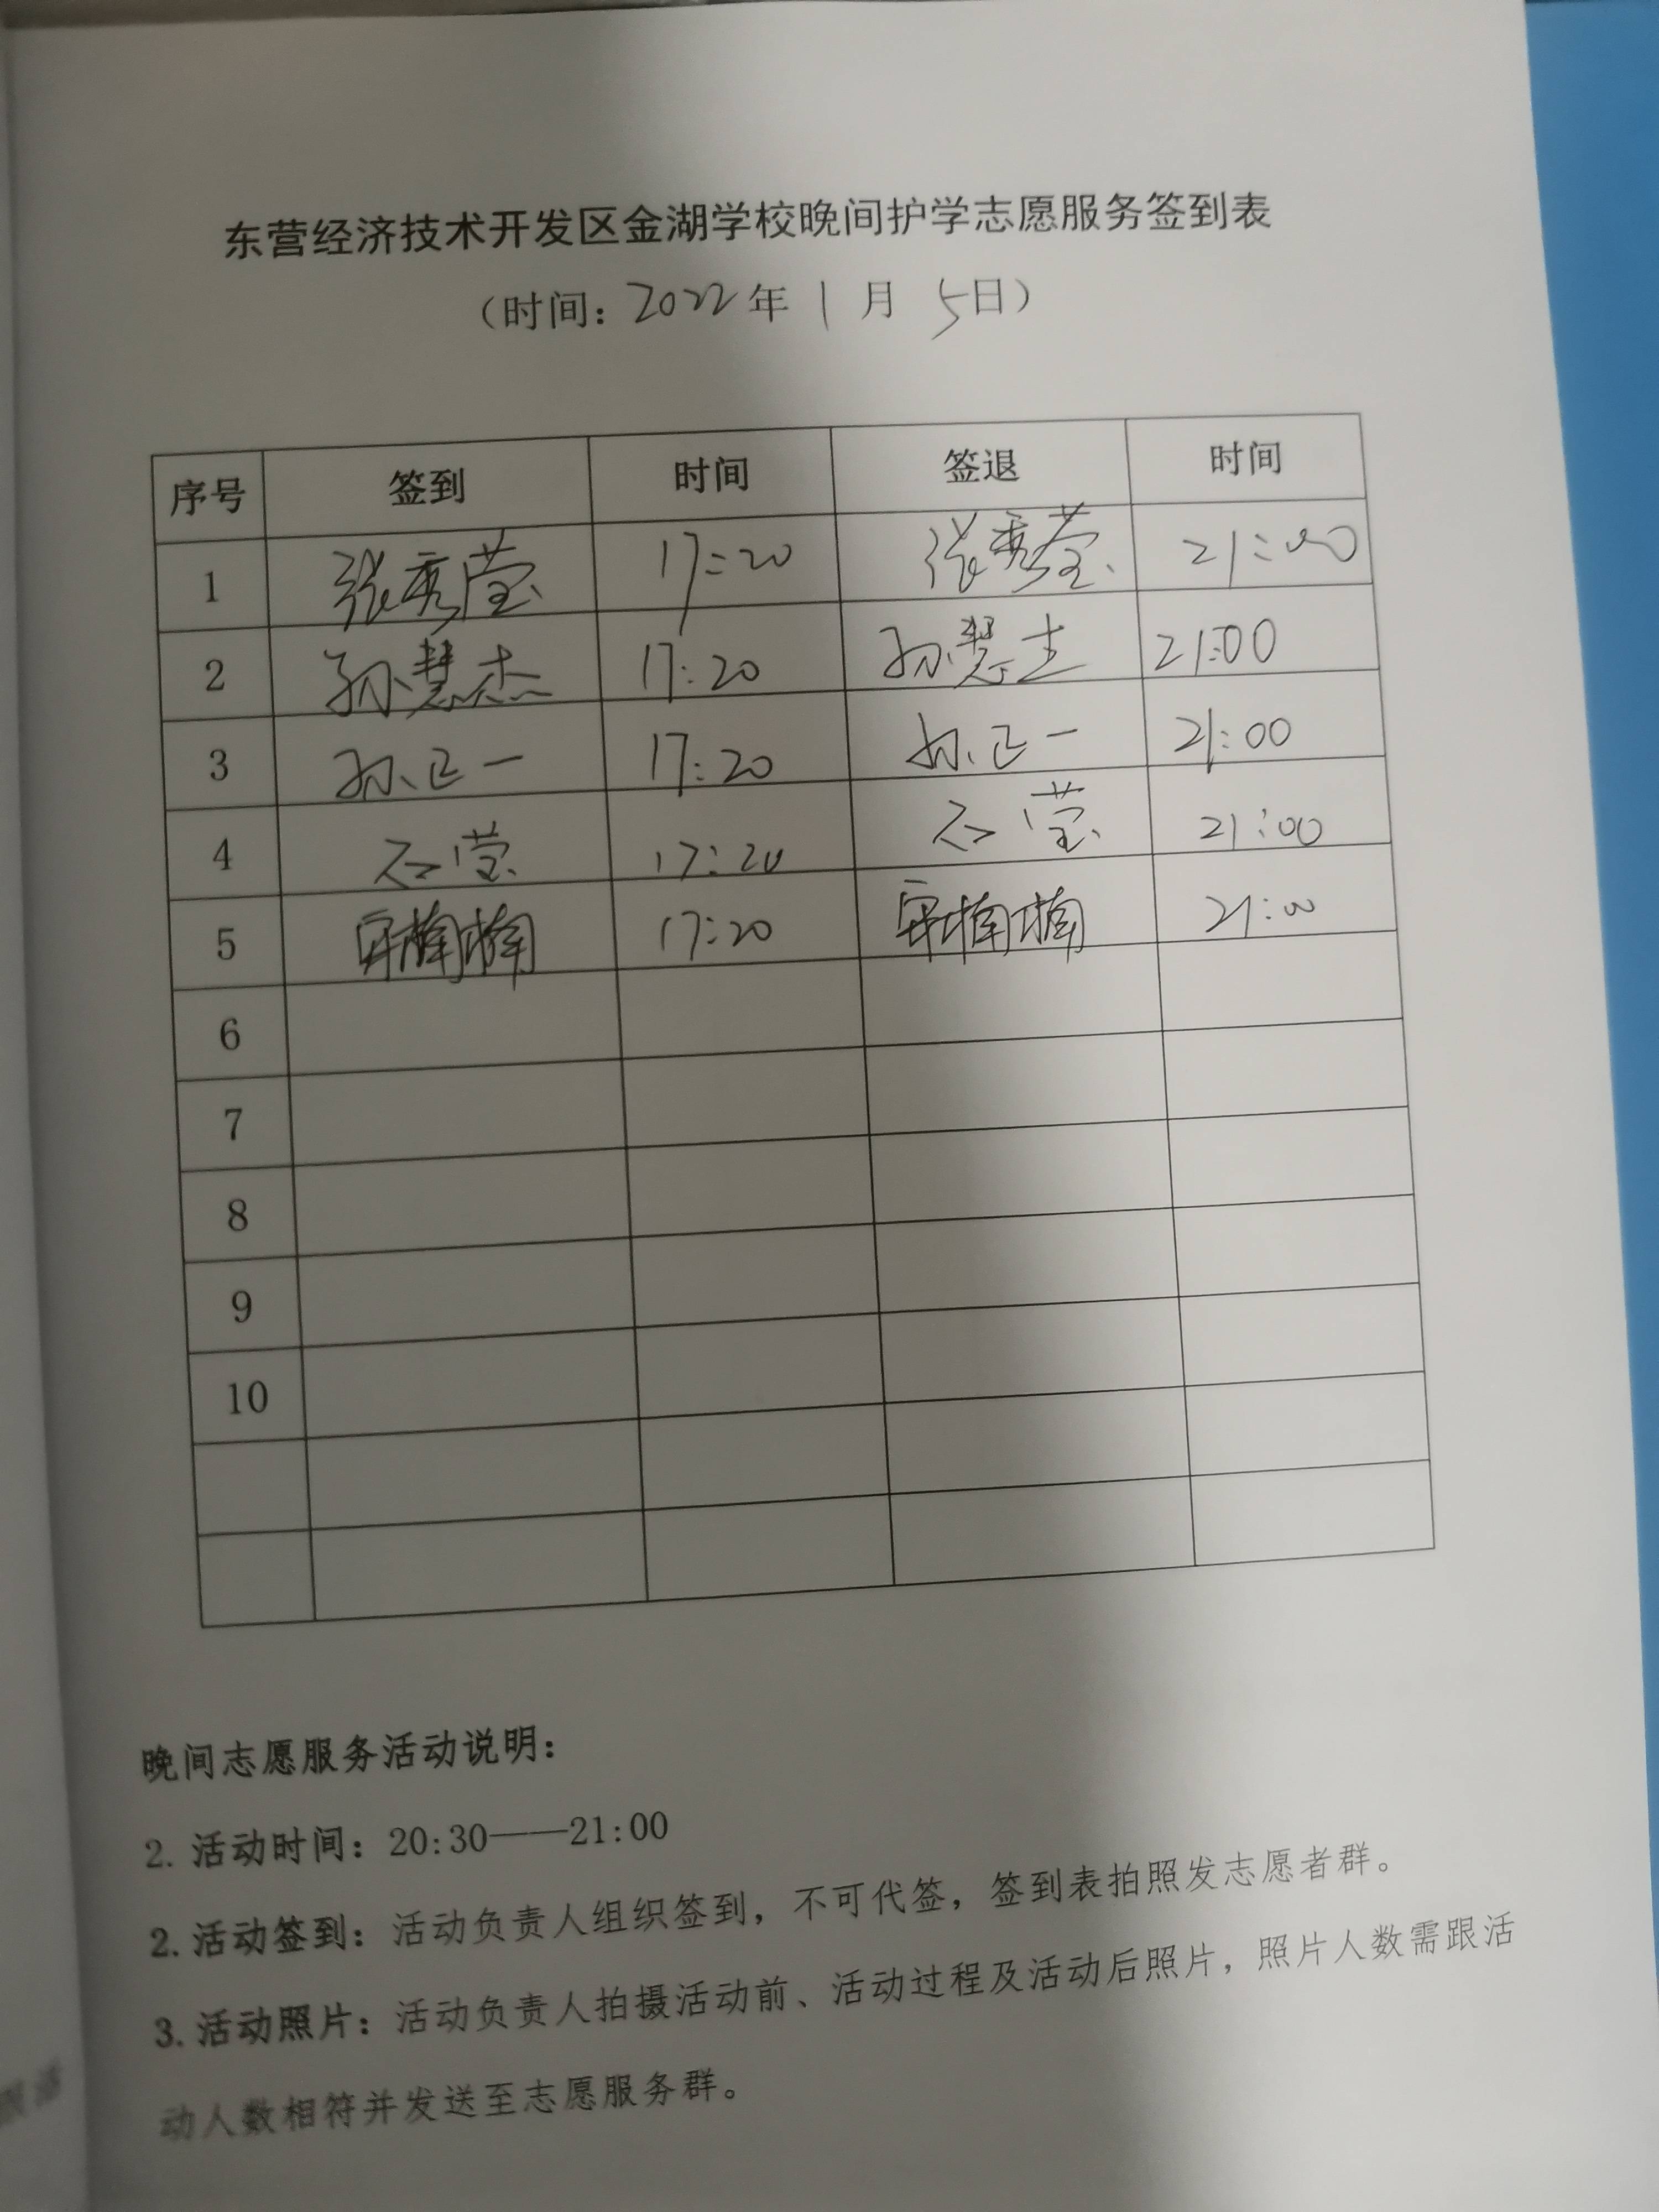 东营经济技术开发区金湖学校晚间护学志愿服务签到表
（时间：2022年 1 月 5日）
序号 签到 时间 签退 时间
1 张秀莹 17:20 张秀莹 21:00
2 孙慧杰 17:20 孙慧 21:00
3 孙正一 17:20 孙正一 21:00
4 石莹 17:20 石莹 21:00
5 楠楠 17:20 楠楠 21:00
6
7
8
9
10
晚间志愿服务活动说明：
2. 活动时间：20:30——21:00
2. 活动签到：活动负责人组织签到，不可代签，签到表拍照发志愿者群。
3. 活动照片：活动负责人拍摄活动前、活动过程及活动后照片，照片人数需跟活
动人数相符并发送至志愿服务群。